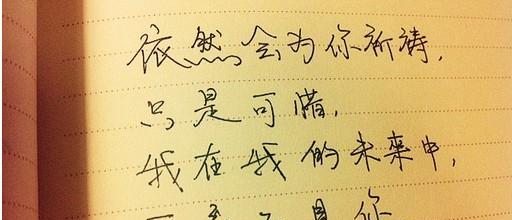 依然会为你祈祷,
只是可惜,
我在我的未来中,
你